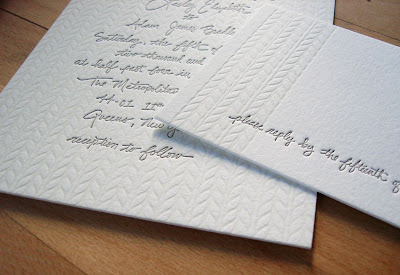 Elizabeth
to
Adam James
Saturday, the fifth of
two thousand and
at half past five in
The Metropolitan
44-01 11th
Queens, New
reception to follow
please reply by the fifteenth of